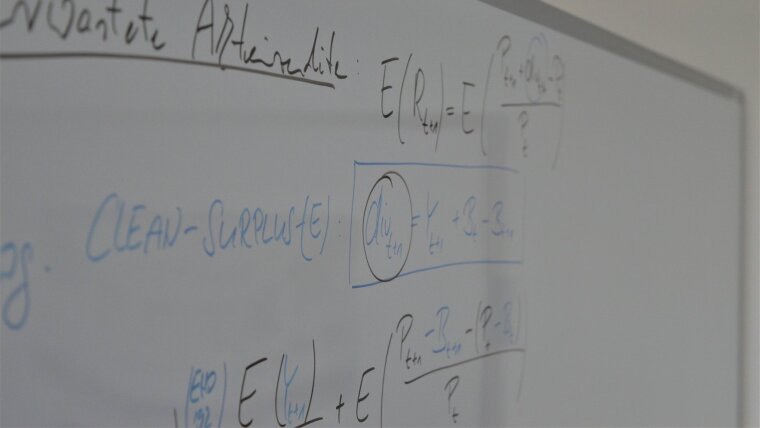 Aktienrendite: E(R_{t+1}) = E((P_{t+1} + div_{t+1} - P_t) / P_t)
CLEAN-SURPLUS-(E): div_{t+1} = Y_{t+1} + B_t - B_{t+1}
E(Y_{t+1}) + E((P_{t+1} - B_{t+1} - (P_t - B_t)) / P_t)